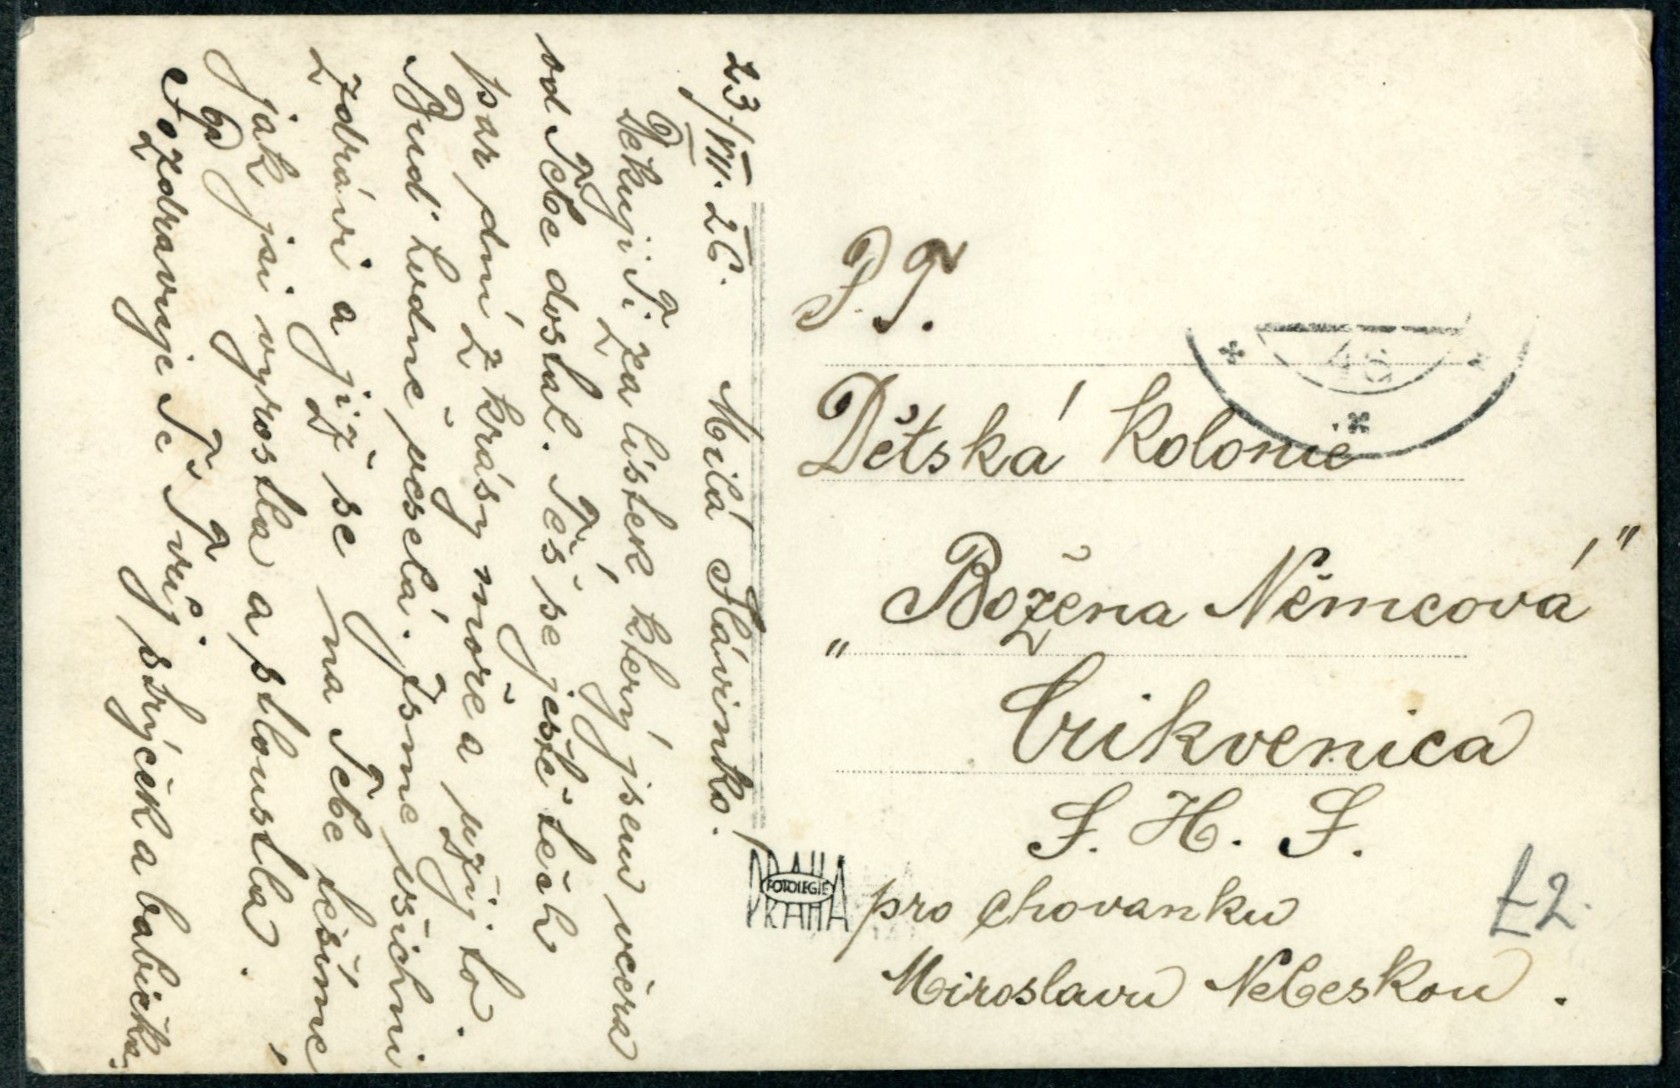 23/VII. 26.
Milá Slávinko.
Děkuji Ti za lístek který jsem včera
od Tebe dostal. Těš se ještě těch
par dní z krásy moře a užij to.
Buď hodně veselá. Jsme všichni
zdrávi a již se na Tebe těšíme
jak jsi vyrostla a stloustla.
Pozdravuje Tě Tvůj strýček a babička.
P. T.
Dětská Kolonie
„Božena Němcová"
Crikvenica
S. H. S.
pro chovanku
Miroslavu Nebeskou.
PRAHA
FOTOLEGIE
PRAHA
£2.